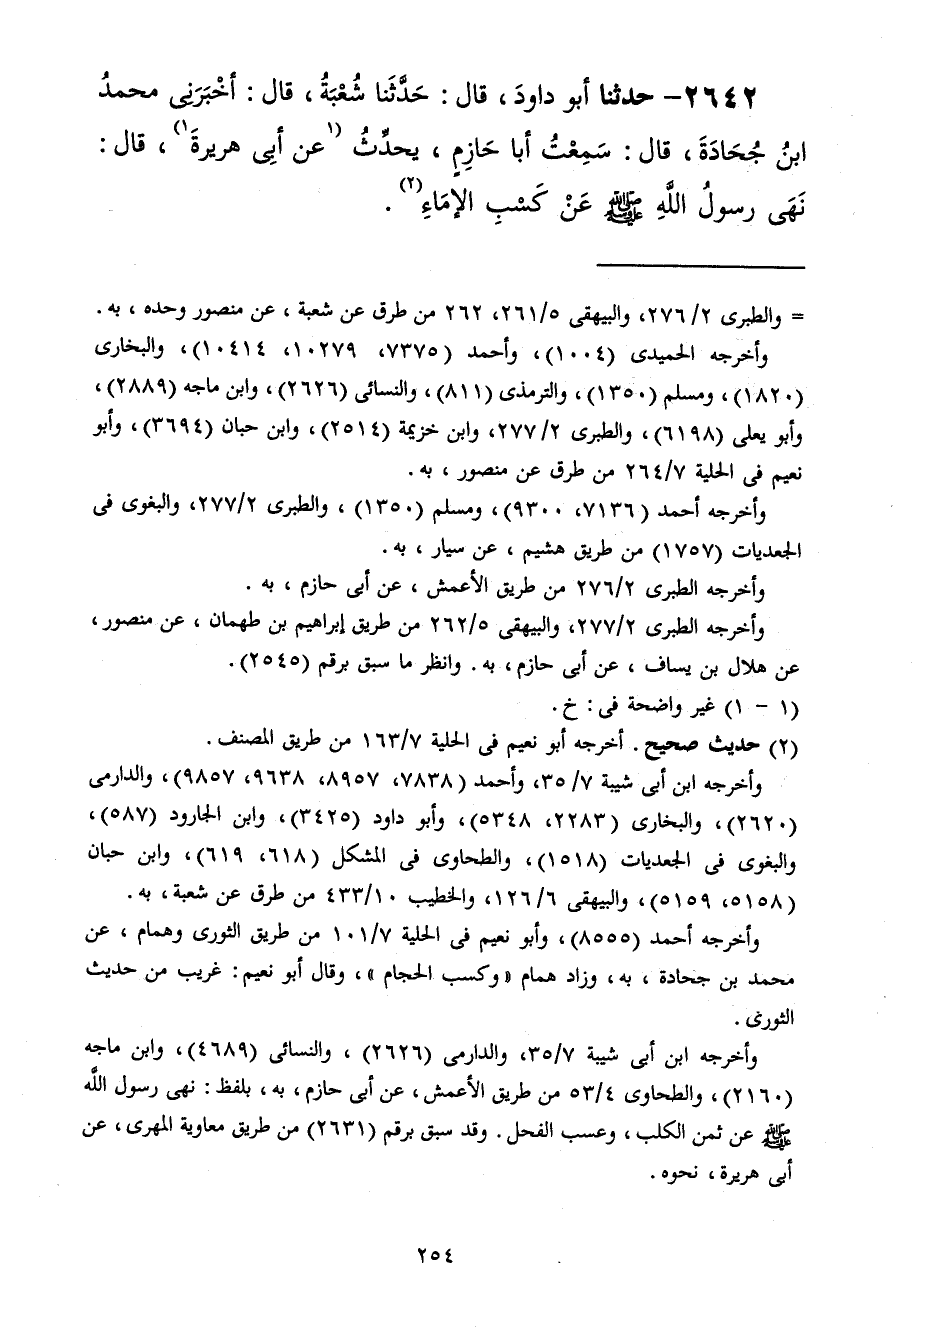 ٢٦٤٢- حدثنا أبو داودَ ، قال : حَدَّثَنا شُعْبَةُ ، قال : أخْبَرَنِى محمدُ
ابنُ جُحَادَةَ ، قال : سَمِعْتُ أبا حَازِمٍ ، يحدِّثُ (١عن أبِى هريرةَ١) ، قال :
نَهَى رسولُ اللَّهِ ﷺ عَنْ كَسْبِ الإمَاءِ(٢) .
= والطبرى ٢٧٦/٢، والبيهقى ٢٦١/٥، ٢٦٢ من طرق عن شعبة ، عن منصور وحده ، به .
وأخرجه الحميدى (١٠٠٤) ، وأحمد (٧٣٧٥، ١٠٢٧٩، ١٠٤١٤) ، والبخارى
(١٨٢٠) ، ومسلم (١٣٥٠) ، والترمذى (٨١١) ، والنسائى (٢٦٢٦) ، وابن ماجه (٢٨٨٩) ،
وأبو يعلى (٦١٩٨) ، والطبرى ٢٧٧/٢، وابن خزيمة (٢٥١٤) ، وابن حبان (٣٦٩٤) ، وأبو
نعيم فى الحلية ٢٦٤/٧ من طرق عن منصور ، به .
وأخرجه أحمد (٧١٣٦، ٩٣٠٠) ، ومسلم (١٣٥٠) ، والطبرى ٢٧٧/٢، والبغوى فى
الجعديات (١٧٥٧) من طريق هشيم ، عن سيار ، به .
وأخرجه الطبرى ٢٧٦/٢ من طريق الأعمش ، عن أبى حازم ، به .
وأخرجه الطبرى ٢٧٧/٢، والبيهقى ٢٦٢/٥ من طريق إبراهيم بن طهمان ، عن منصور ،
عن هلال بن يساف ، عن أبى حازم ، به . وانظر ما سبق برقم (٢٥٤٥) .
(١ - ١) غير واضحة فى : خ .
(٢) حديث صحيح . أخرجه أبو نعيم فى الحلية ١٦٣/٧ من طريق المصنف .
وأخرجه ابن أبى شيبة ٣٥/٧، وأحمد (٧٨٣٨، ٨٩٥٧، ٩٦٣٨، ٩٨٥٧) ، والدارمى
(٢٦٢٠) ، والبخارى (٢٢٨٣، ٥٣٤٨) ، وأبو داود (٣٤٢٥) ، وابن الجارود (٥٨٧) ،
والبغوى فى الجعديات (١٥١٨) ، والطحاوى فى المشكل (٦١٨، ٦١٩) ، وابن حبان
(٥١٥٨، ٥١٥٩) ، والبيهقى ١٢٦/٦، والخطيب ٤٣٣/١٠ من طرق عن شعبة ، به .
وأخرجه أحمد (٨٥٥٥) ، وأبو نعيم فى الحلية ١٠١/٧ من طريق الثورى وهمام ، عن
محمد بن جحادة ، به ، وزاد همام « وكسب الحجام » ، وقال أبو نعيم : غريب من حديث
الثورى .
وأخرجه ابن أبى شيبة ٣٥/٧، والدارمى (٢٦٢٦) ، والنسائى (٤٦٨٩) ، وابن ماجه
(٢١٦٠) ، والطحاوى ٥٣/٤ من طريق الأعمش ، عن أبى حازم ، به ، بلفظ : نهى رسول اللَّه
ﷺ عن ثمن الكلب ، وعسب الفحل . وقد سبق برقم (٢٦٣١) من طريق معاوية المهرى ، عن
أبى هريرة ، نحوه .
٢٥٤